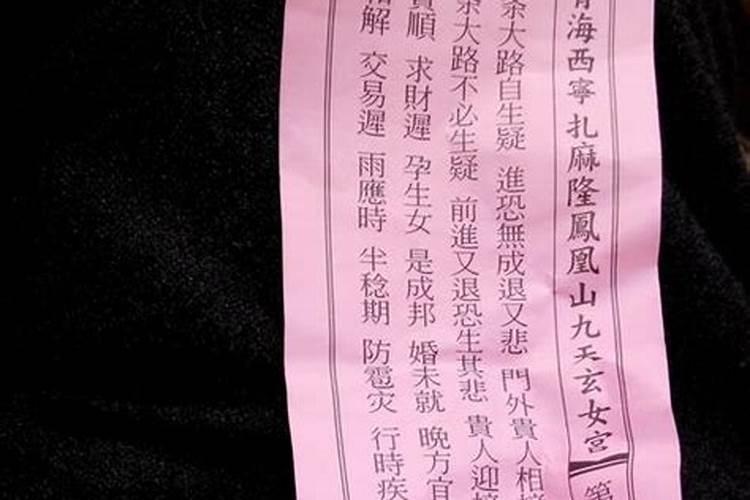 海西寧扎麻隆鳳凰山九天玄女宮
条大路自生疑 進恐無成退又悲 門外貴人相
条大路不必生疑 前進又退恐生其悲 貴人迎
順 求財遲 孕生女 是成邦 婚未就 晚方宜
解 交易遲 雨應時 半稔期 防雹灾 行時疾